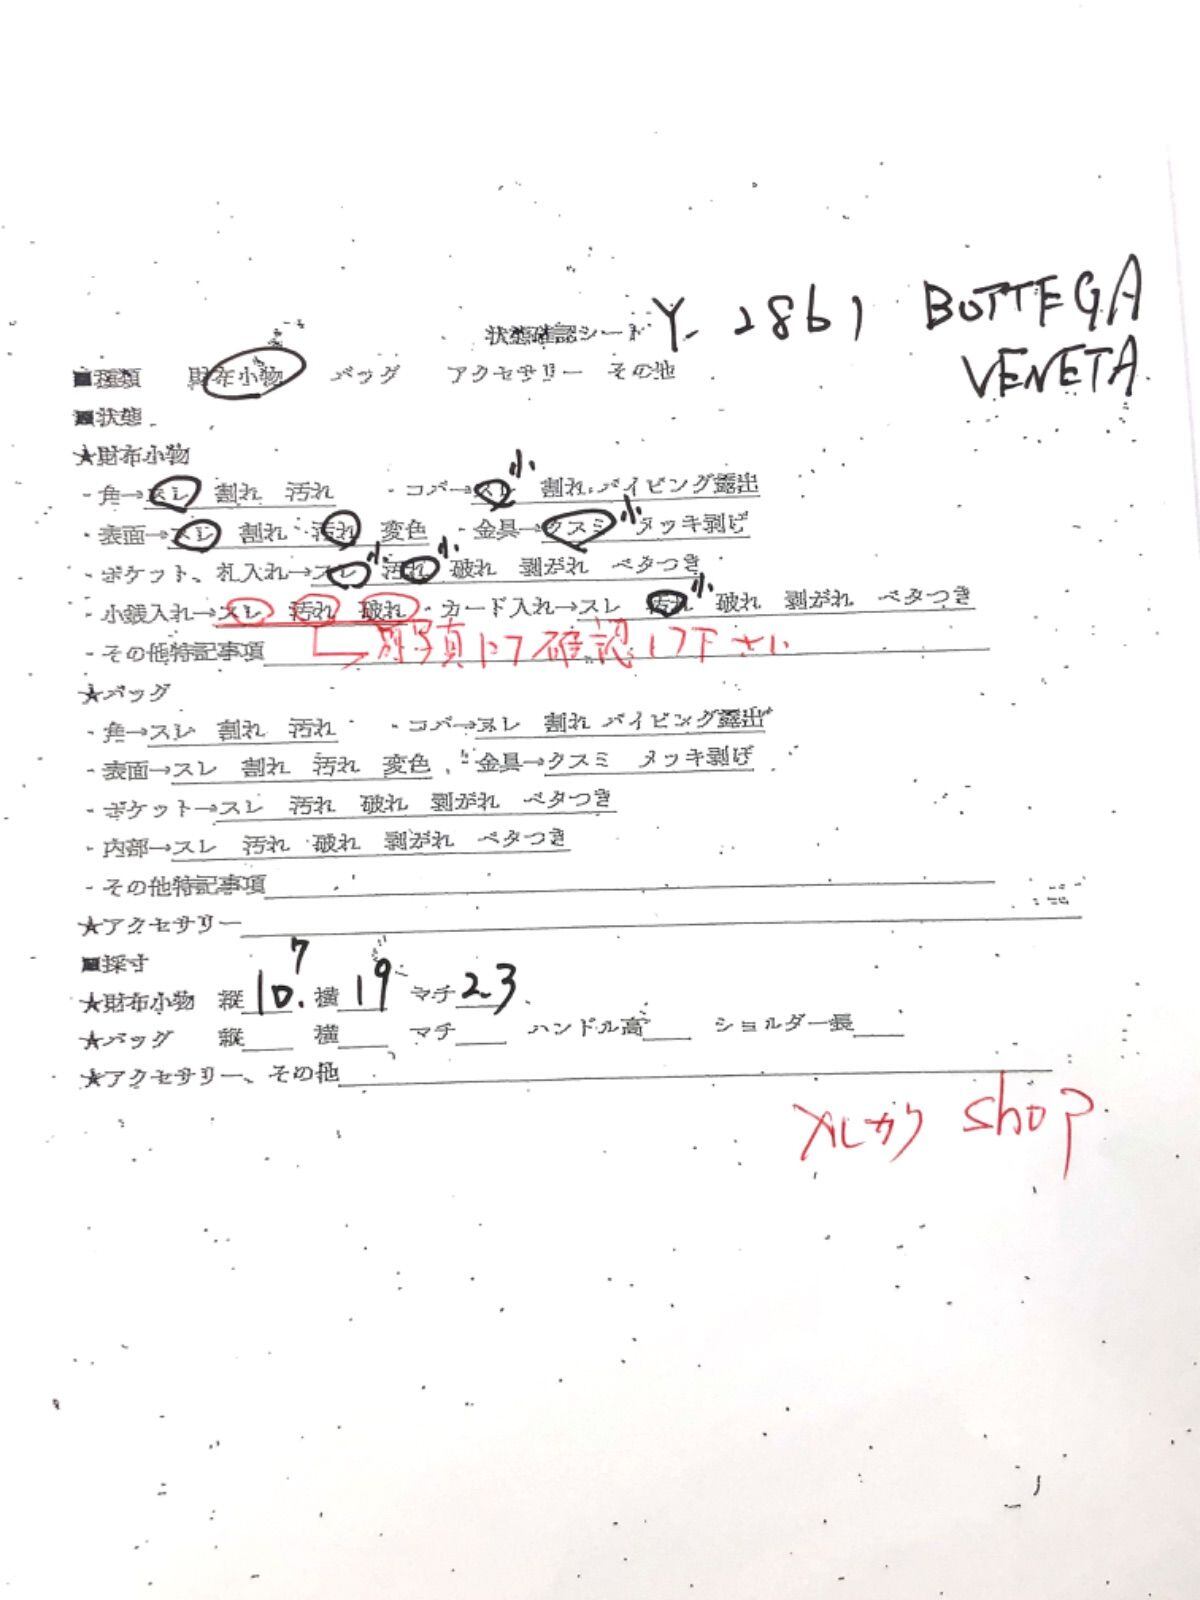 状態確認シート Y-2861 BOTTEGA VENETA
■種類 財布小物 バッグ アクセサリー その他
■状態
★財布小物
・角→スレ 割れ 汚れ ・コバ→スレ 小 割れ パイピング露出
・表面→スレ 割れ 汚れ 変色 ・金具→クスミ 小 メッキ剥げ
・ポケット、札入れ→スレ 小 汚れ 小 破れ 剥がれ ベタつき
・小銭入れ→スレ 汚れ 破れ ・カード入れ→スレ 汚れ 小 破れ 剥がれ ベタつき
・その他特記事項 別写真にて確認して下さい
★バッグ
・角→スレ 割れ 汚れ ・コバ→スレ 割れ パイピング露出
・表面→スレ 割れ 汚れ 変色 ・金具→クスミ メッキ剥げ
・ポケット→スレ 汚れ 破れ 剥がれ ベタつき
・内部→スレ 汚れ 破れ 剥がれ ベタつき
・その他特記事項
★アクセサリー
■採寸
★財布小物 縦10.7 横19 マチ2.3
★バッグ 縦 横 マチ ハンドル高 ショルダー長
★アクセサリー、その他
メルカリ shop